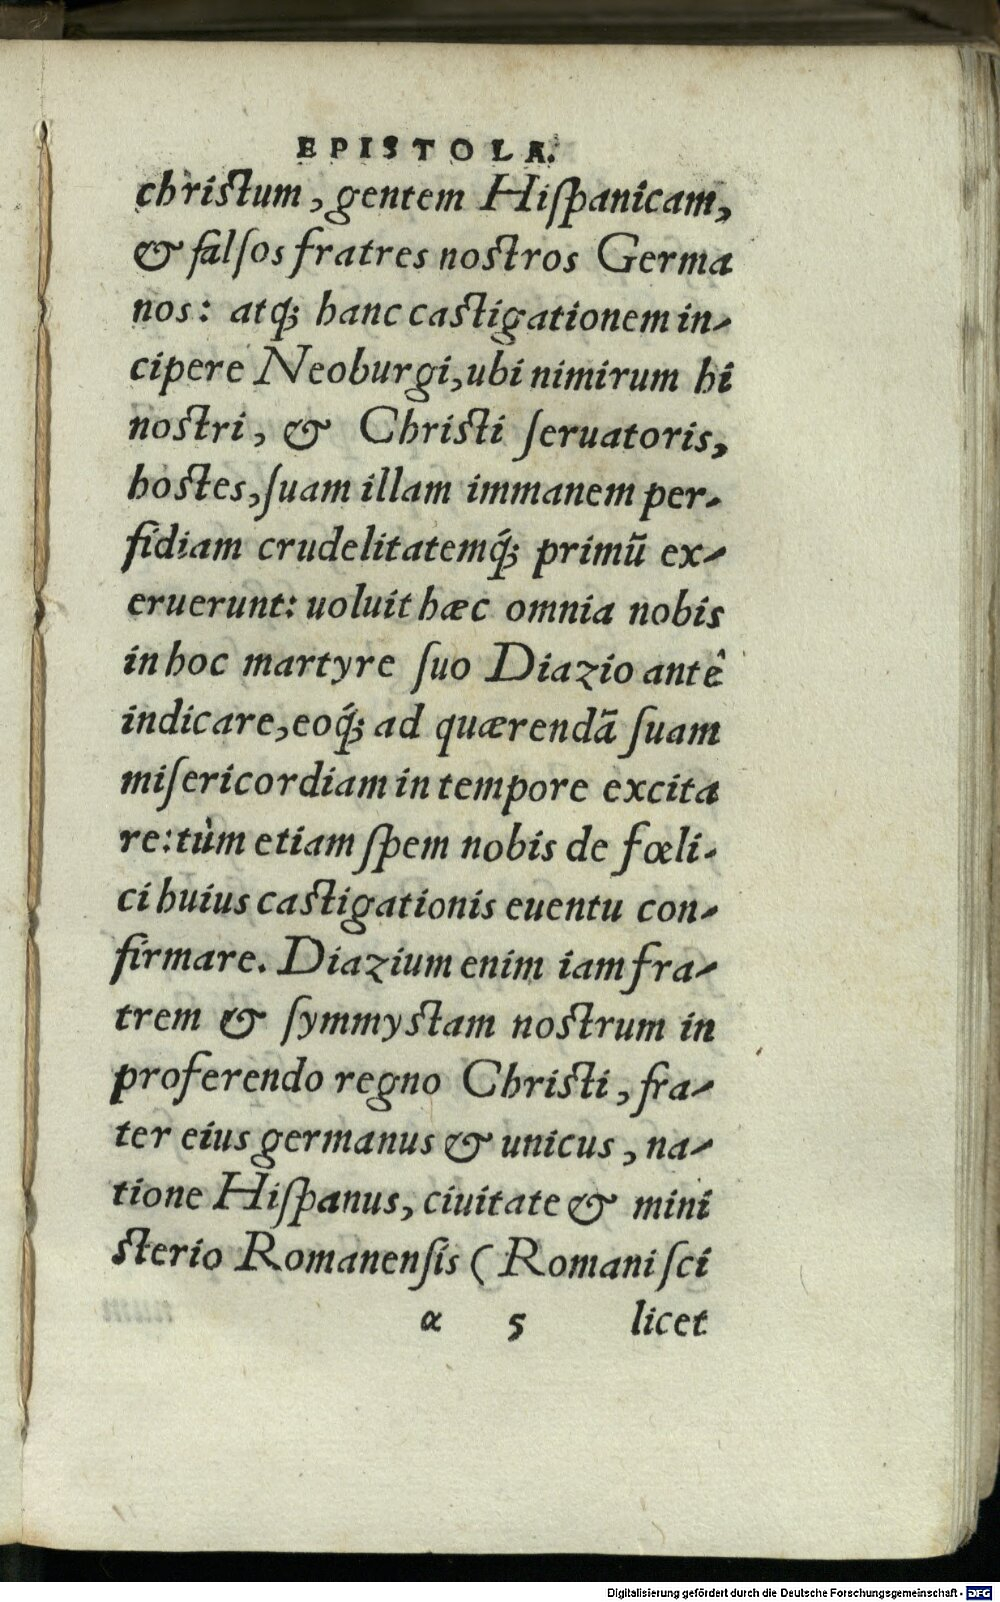 EPISTOLA.
christum, gentem Hiſpanicam,
& falſos fratres nostros Germa
nos: atq́; hanc castigationem in-
cipere Neoburgi, ubi nimirum hi
nostri, & Christi ſeruatoris,
hostes, ſuam illam immanem per-
fidiam crudelitatemq́; primũ ex-
eruerunt: uoluit hæc omnia nobis
in hoc martyre ſuo Diazio antê
indicare, eoq́; ad quærendã ſuam
miſericordiam in tempore excita
re: tùm etiam ſpem nobis de fœli-
ci huius castigationis euentu con-
firmare. Diazium enim iam fra-
trem & ſymmystam nostrum in
proferendo regno Christi, fra-
ter eius germanus & unicus, na-
tione Hiſpanus, ciuitate & mini
sterio Romanenſis (Romani ſci
α 5 licet
Digitalisierung gefördert durch die Deutsche Forschungsgemeinschaft - DFG